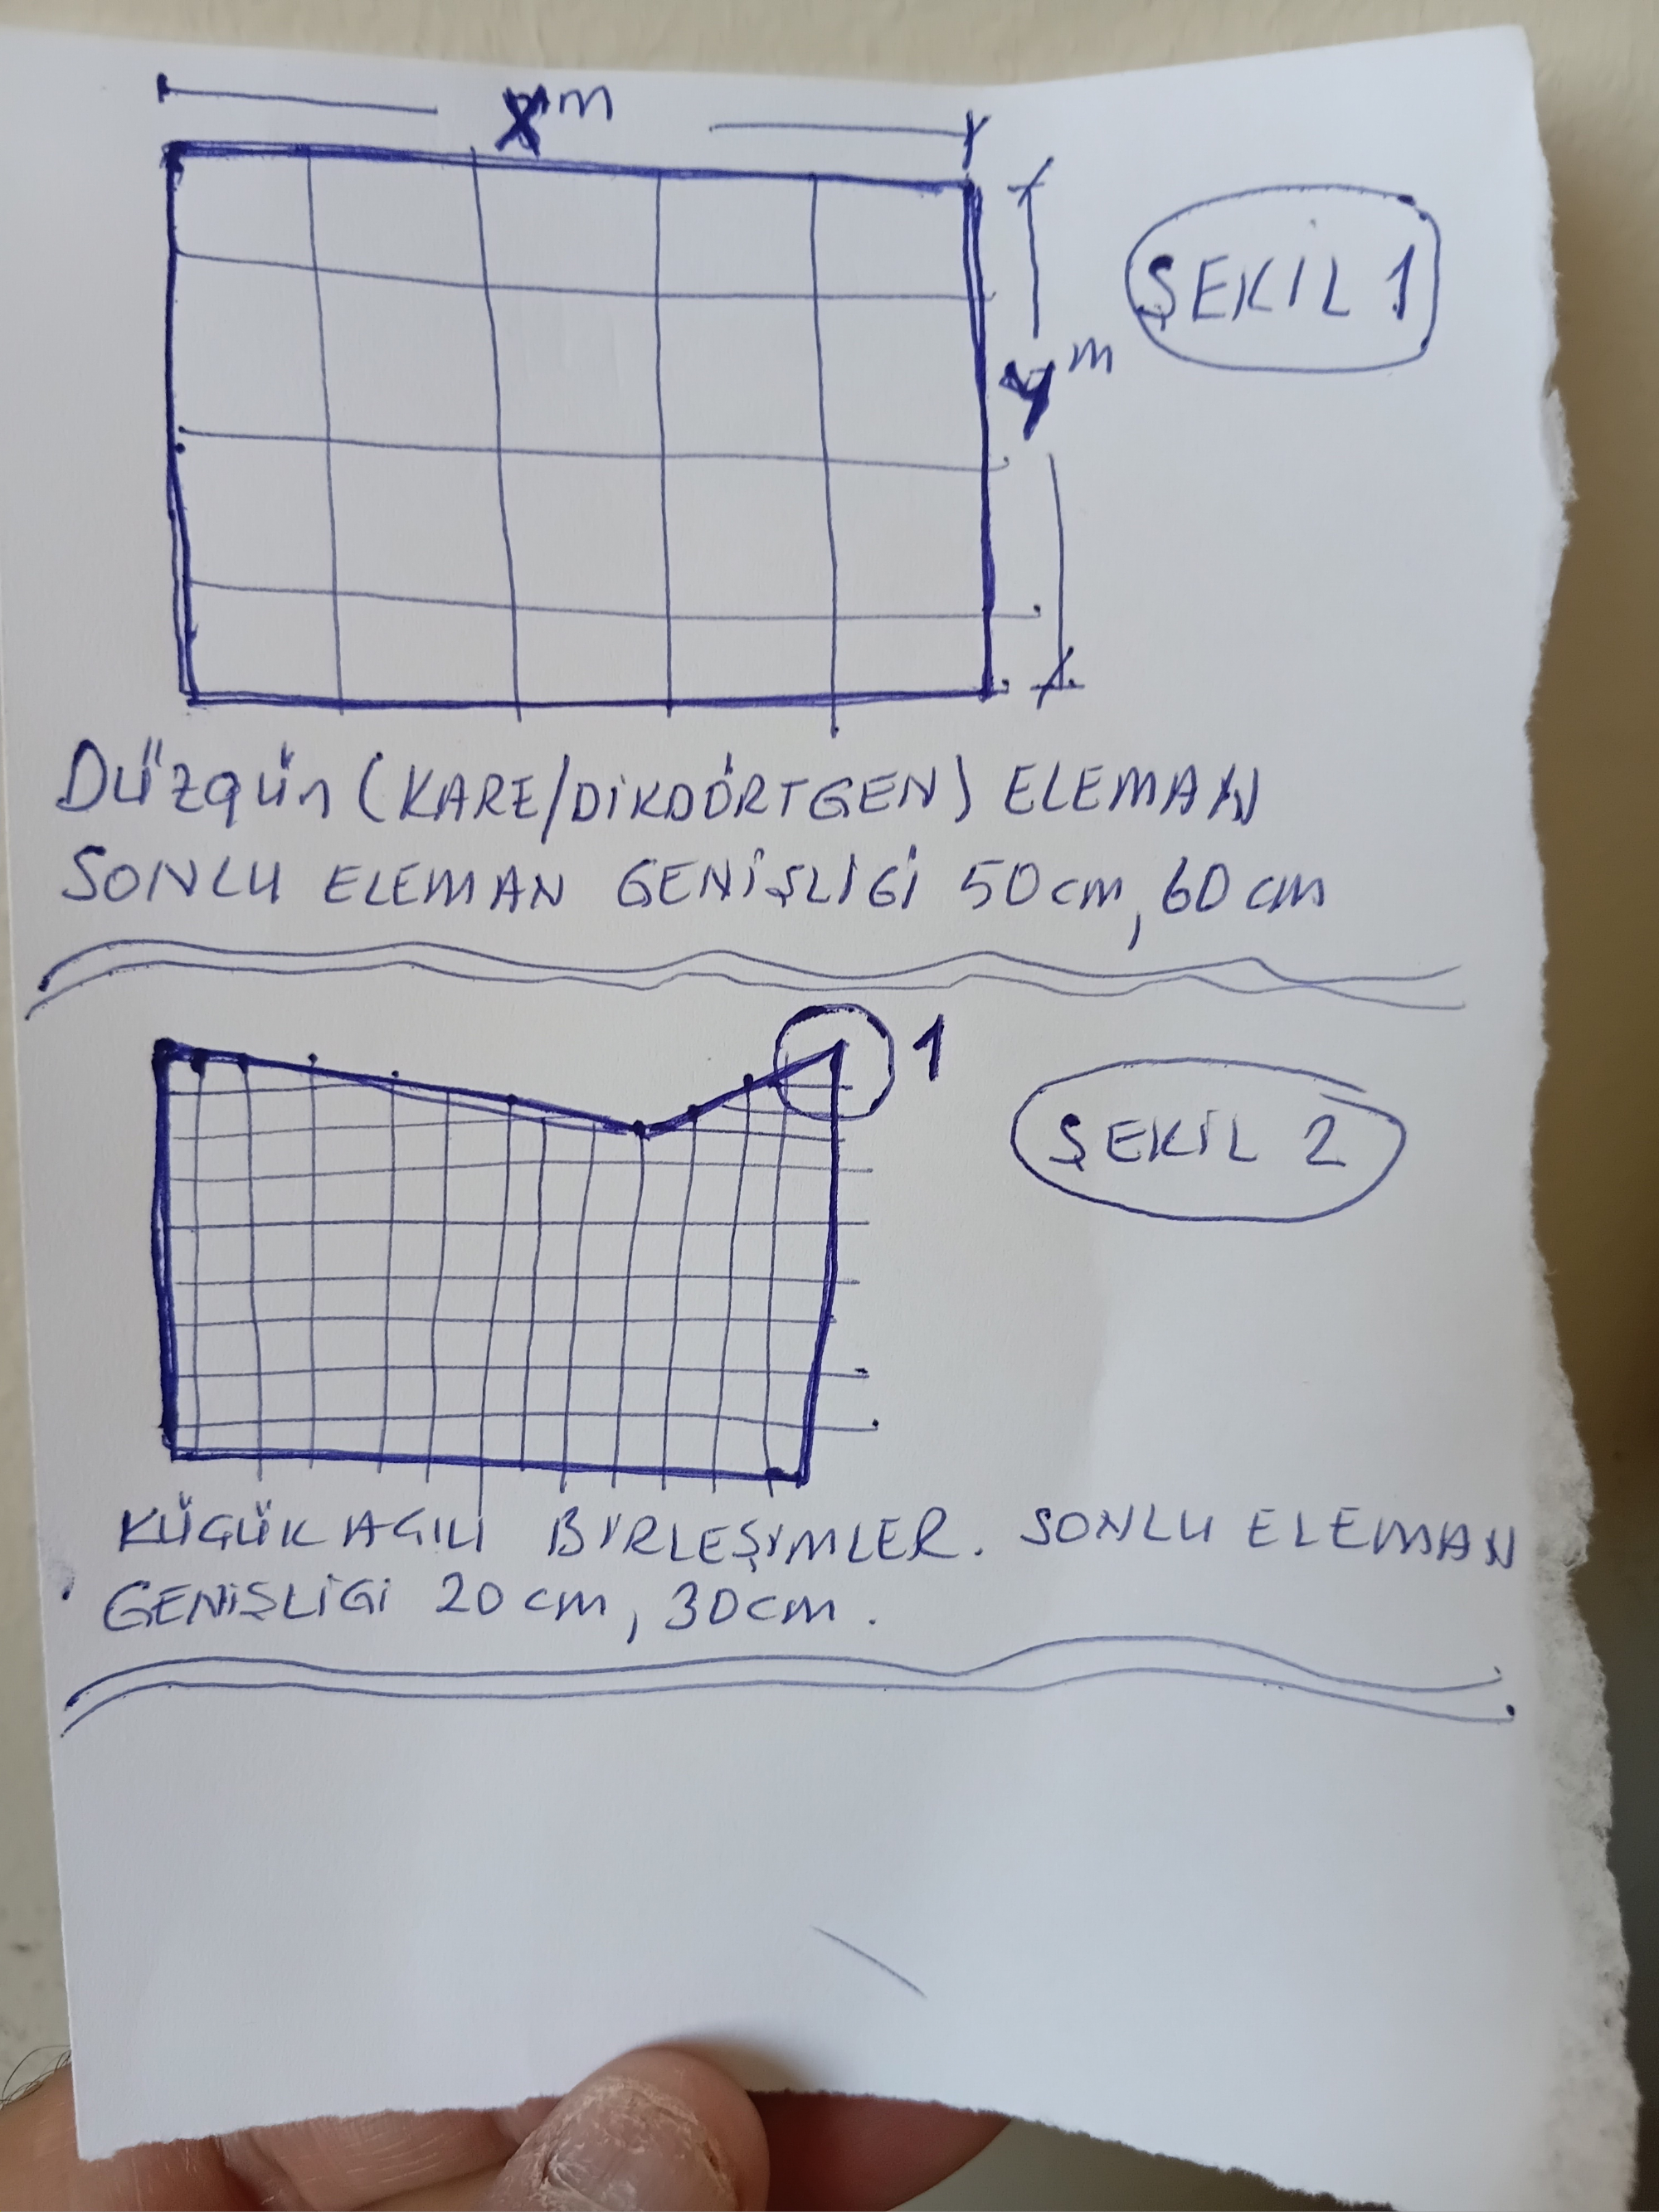 X m
ŞEKİL 1
y m
Düzgün (KARE/DİKDÖRTGEN) ELEMAN
SONLU ELEMAN GENİŞLİGİ 50 cm, 60 cm
1
ŞEKİL 2
KÜÇÜK AÇILI BİRLEŞİMLER. SONLU ELEMAN
GENİŞLİGİ 20 cm, 30 cm.